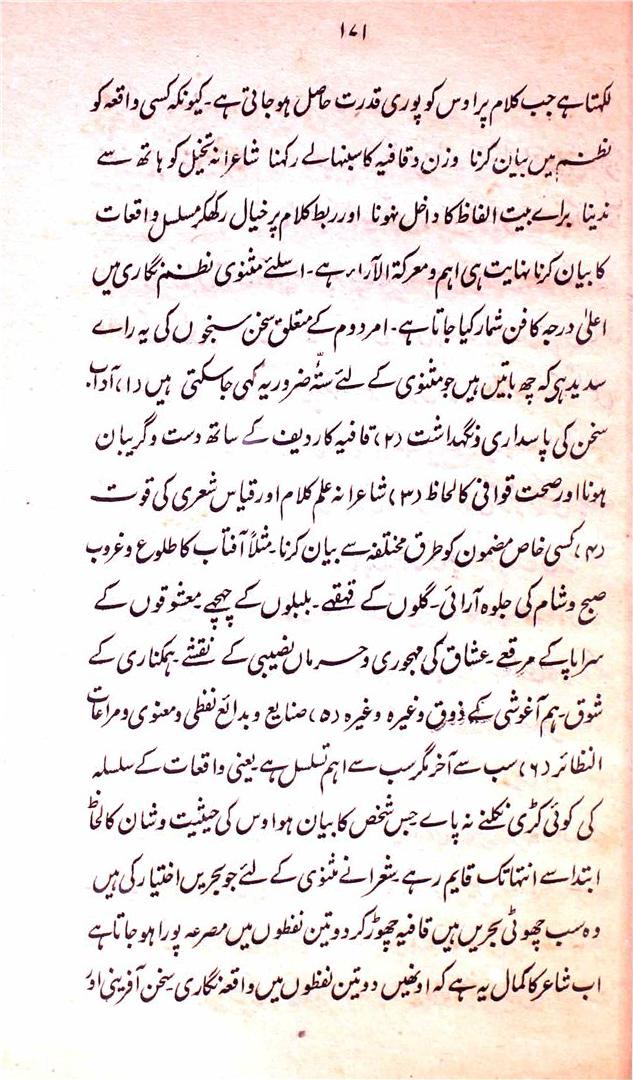 ۱۷۱
لکھتا ہے جب کلام پر اوس کو پوری قدرت حاصل ہو جاتی ہے۔ کیونکہ کسی واقعہ کو
نظم میں بیان کرنا وزن و قافیہ کا سنبہالے رکہنا شاعرانہ تخیل کو ہاتھ سے
ندینا براے بیت الفاظ کا داخل نہونا اور ربط کلام پر خیال رکھکر مسلسل واقعات
کا بیان کرنا نہایت ہی اہم و معرکۃ الآراء ہے۔ اسلئے مثنوی نظم نگاری میں
اعلیٰ درجہ کا فن شمار کیا جاتا ہے۔ امر دوم کے متعلق سخن سنجوں کی یہ راے
سدید ہی کہ چھ باتیں ہیں جو مثنوی کے لئے ستّہ ضروریہ کہی جا سکتی ہیں (۱) آداب
سخن کی پاسداری و نگہداشت (۲) قافیہ کا ردیف کے ساتھ دست و گریبان
ہونا اور صحت قوافی کا لحاظ (۳) شاعرانہ علم کلام اور قیاس شعری کی قوت
(۴) کسی خاص مضمون کو طرق مختلفہ سے بیان کرنا۔ مثلاً آفتاب کا طلوع و غروب
صبح و شام کی جلوہ آرائی۔ گلوں کے قہقہے۔ بلبلوں کے چہچہے معشوقوں کے
سراپا کے مرقعے۔ عشاق کی مہجوری و حرماں نصیبی کے نقشے۔ ہمکناری کے
شوق۔ ہم آغوشی کے ذوق وغیرہ وغیرہ (۵) صنایع و بدائع لفظی و معنوی و مراعات
النظائر (۶) سب سے آخر مگر سب سے اہم تسلسل ہے یعنی واقعات کے سلسلہ
کی کوئی کڑی نکلنے نہ پاے جس شخص کا بیان ہو اوس کی حیثیت و شان کا لحاظ
ابتدا سے انتہا تک قایم رہے۔ شعرا نے مثنوی کے لئے جو بحریں اختیار کی ہیں
وہ سب چھوٹی بحریں ہیں قافیہ چھوڑ کر دو تین لفظوں میں مصرعہ پورا ہو جاتا ہے
اب شاعر کا کمال یہ ہے کہ اونھیں دو تین لفظوں میں واقعہ نگاری سخن آفرینی اور